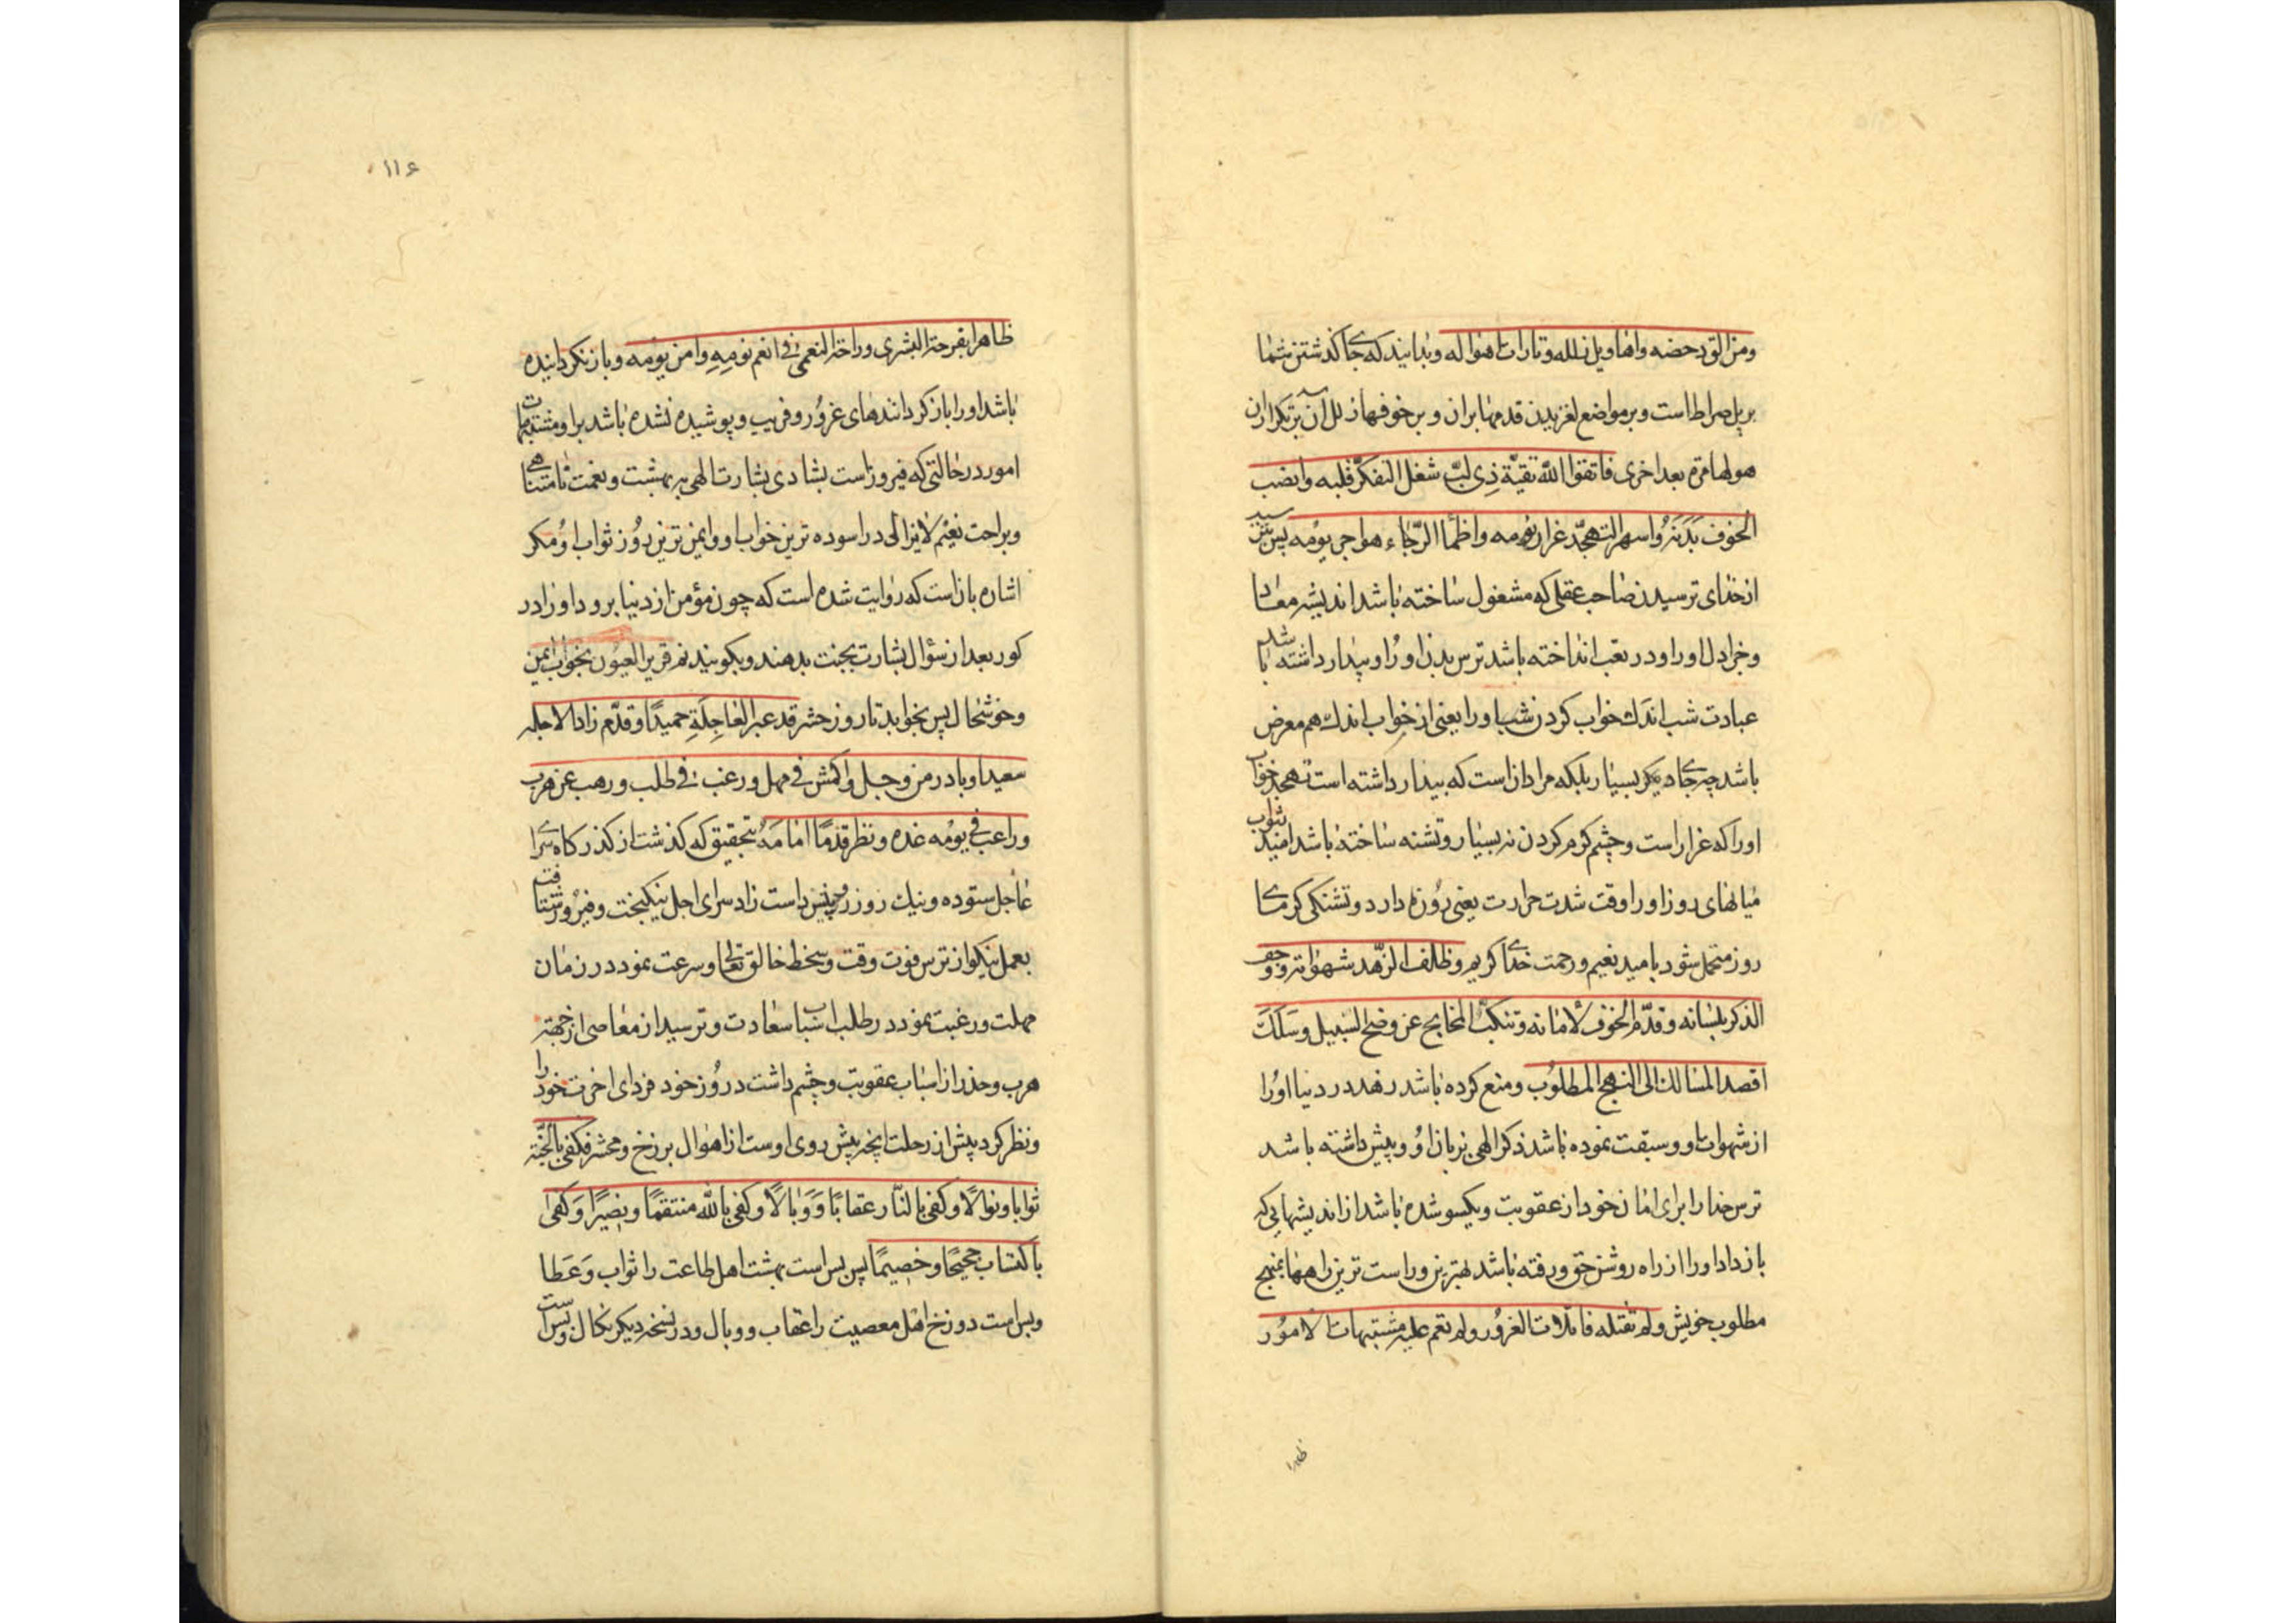 ومزالق دحضه واهاویل زلله وتارات اهواله وبدانید که جای گذشتن شما
بر پل صراط است وبر مواضع لغزیدن قدمها بران وبر خوفهاز لل آن بر تکراران
هولها مرة بعد اخری فاتقوا الله تقیّة ذی لبّ شغل التفکّر قلبه وانصب
الخوف بَدَنَهُ واسهر التهجّد غرار نومه واظمأ الرّجاء هواجر یومه پس بترسید
از خدای ترسیدن صاحب عقلی که مشغول ساخته باشد اندیشه معاد
دل اورا ودر تعب انداخته باشد ترس بدن اورا وبیدار داشته باشد
عبادت شب اندک خواب کردن شب اورا یعنی از خواب اندک هم معرض
باشد چه جای دیگر بسیار بلکه مراد از است که بیدار داشته است تهجد خواب
اورا که غرار است وچشم گرم کردن نه بسیار وتشنه ساخته باشد امید ثواب
میانهای روز اورا وقت شدت حرارت یعنی روزه دارد وتشنکی کرمای
روز متحمل شود بامید نعیم ورحمت خدای کریم وظلف الزّهد شهواته ووجف
الذکر بلسانه وقدّم الخوف لامانه وتنکّب المخالج عن وضح السبیل وسَلَکَ
اقصد المسالک الی النهج المطلوب ومنع کرده باشد زهد در دنیا اورا
از شهوات او وسبقت نموده باشد ذکر الهی بزبان او وپیش داشته باشد
ترس خدا را برای امان خود از عقوبت ویکسو شده باشد از اندیشهایی که
باز دارد اورا از راه روشن حق ورفته باشد بهترین وراست ترین راهها بنهج
مطلوب خویش ولم تفتله فاتلات الغرور ولم تعم علیه مشتبهات الامور
ظاهرا
۱۱۶
ظاهرا بفرحة البشری وراحة النعمی فی انعم نومه وامن یومه وباز نکردانیده
باشد اورا باز کردانندهای غرور وفریب وپوشیده نشده باشد براو مشتبهات
امور در حالتی که فیروز است بشادی بشارت الهی به بهشت ونعمت نامتناهی
وبراحت نعیم لایزالی در اسوده ترین خواب او وایمن ترین روز ثواب او مکر
اشاره بان است که روایت شده است که چون مؤمن از دنیا برود اورا در
کور بعد از سؤال بشارت بجنت بدهند وبکویند نم قریر العیون بخواب ایمن
وخوشحال پس بخوابد تا روز حشر قد عبر العاجِلَةِ حمیدًا وقدّم زاد الاجله
سعیدا وبادر من وجل واکمش فی مهل ورغب فی طلب ورهب عن هرب
وراعب فی یومه غده ونظر قدمًا امامَهُ بتحقیق که کذشت از کذرکاه سرای
عاجل ستوده ونیک روز وپیش داشت زاد سرای اجل نیکبخت وفیروز وشتافت
بعمل نیکو از ترس فوت وقت وسخط خالق تعالی وسرعت نمود در زمان
مهلت ورغبت نمود در طلب اسباب سعادت وترسید از معاصی از جهة
هرب وحذر از اسباب عقوبت وچشم داشت در روز خود فردای اخرت خود را
ونظر کرد پیش از رحلت انچه پیش روی اوست از اهوال برزخ ومحشر فکفی بالجنّة
ثوابا ونوالًا وکفی بالنّار عقابًا وَوَبالًا وکفی بالله منتقمًا ونصیرًا وَکفی
بالکتاب حجیجًا وخصیمًا پس بس است بهشت اهل طاعت را ثواب وَعَطا
وبس است دوزخ اهل معصیت را عقاب ووبال ودر نسخه دیکر نکال وبس است